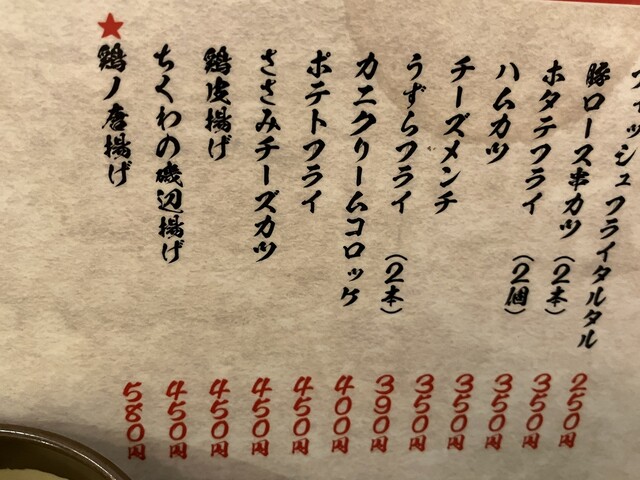 フィッシュフライタルタル 250円
豚ロース串カツ（2本） 350円
ホタテフライ（2個） 350円
ハムカツ 350円
チーズメンチ 350円
うずらフライ（2本） 390円
カニクリームコロッケ 400円
ポテトフライ 450円
ささみチーズカツ 450円
鶏皮揚げ 450円
ちくわの磯辺揚げ 450円
★鶏ノ唐揚げ 580円